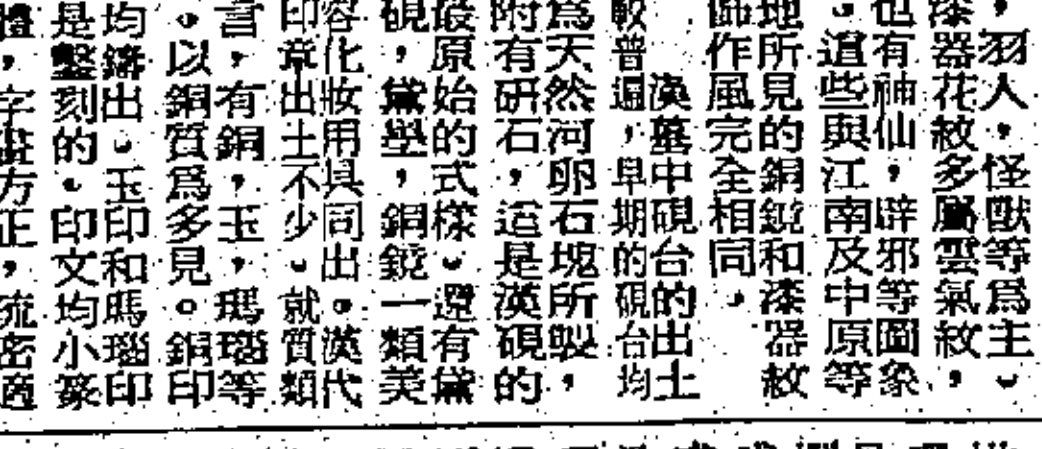 ，羽人，怪獸等爲主。
漆器花紋，多屬雲氣紋，
也有神仙，辟邪等圖象
。這些與江南及中原等
地所見的銅鏡和漆器紋
飾作風完全相同。
漢墓中硯台的出土
較普遍，早期的硯台均
爲天然河卵石塊所製，
附有研石，這是漢硯的
最原始的式樣。還有黛
硯，黛，銅鏡一類美
容化妝用具同出。漢代
印章出土不少。就質類
言，有銅，玉，瑪瑙等
。以銅質爲多見。銅印
均鑄出。玉印和瑪瑙印
是鑿刻的。印文均小篆
體，字畫方正，流密適